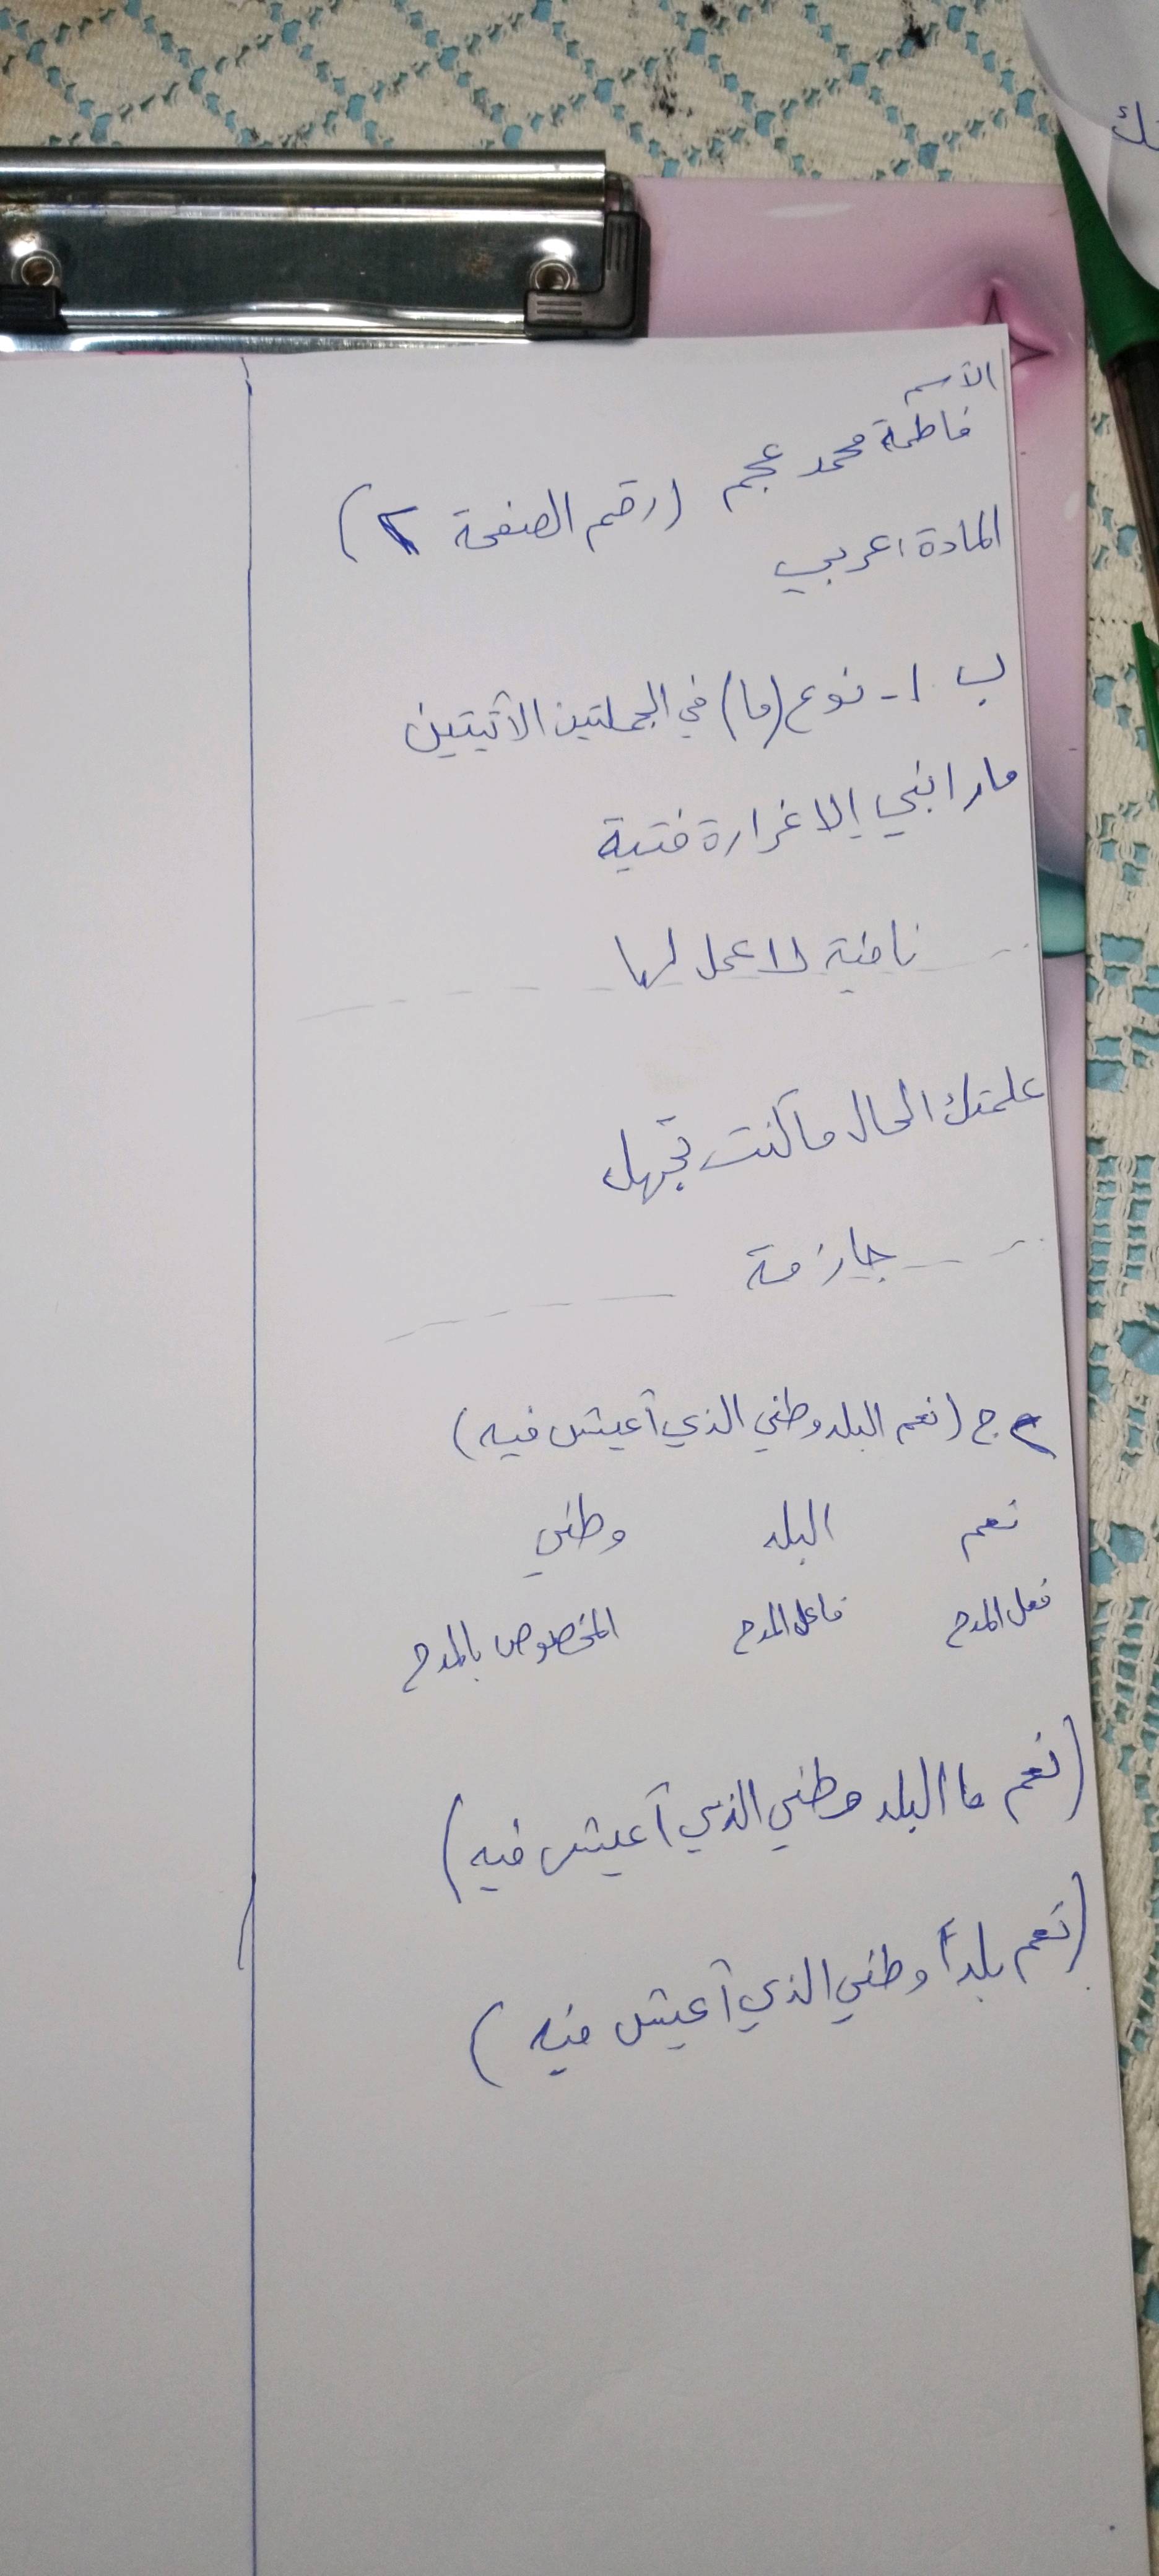 الآسم
فاطمة محمد عجم (رقم الصفحة ٢)
المادة: عربي
ب ١- نوع (ما) في الجملتين الآتيتين
مارابني إلا غرارة فتية
نافية لا عمل لها
علمتك الحال ما كنت تجهل
جازمة
٢ ج (نعم البلد وطني الذي أعيش فيه)
نعم البلد وطني
فعل المدح فاعل المدح المخصوص بالمدح
(نعم ما البلد وطني الذي أعيش فيه)
(نعم بلداً وطني الذي أعيش فيه)